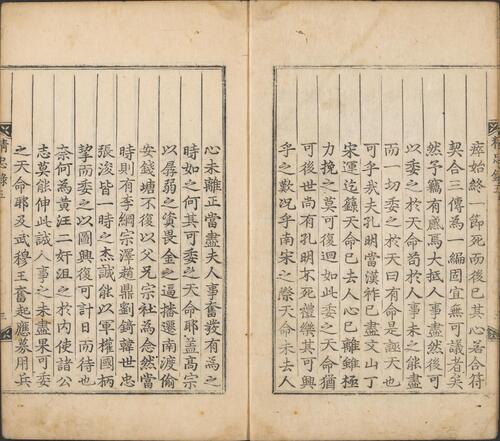 瘁始終一節死而後已其心若合符
契合三傳為一編固宜無可議者矣
然予竊有感焉大抵人事盡然後可
以委之於天命苟於人事未之能盡
而一切委之於天曰有命是誣天也
可乎我夫孔明當漢祚已盡文山丁
宋運迄籙天命已去人心已離雖極
力挽之莫可復迴如此委之天命猶
可後世尚有孔明不死禮樂其可興
乎之歎況乎南宋之際天命未去人
心未離正當盡夫人事奮發有為之
時如之何其可委之天命耶盖高宗
以孱弱之資畏金之逼播遷南渡偷
安錢塘不復以父兄宗社為念然當
時則有李綱宗澤趙鼎劉錡韓世忠
張浚皆一時之杰誠能以軍權國柄
挈而委之以圖興復可計日而待也
奈何為黄汪二奸沮之於內使諸公
志莫能伸此誠人事之未盡果可委
之天命耶及武穆王奮起應募用兵
精忠錄
三